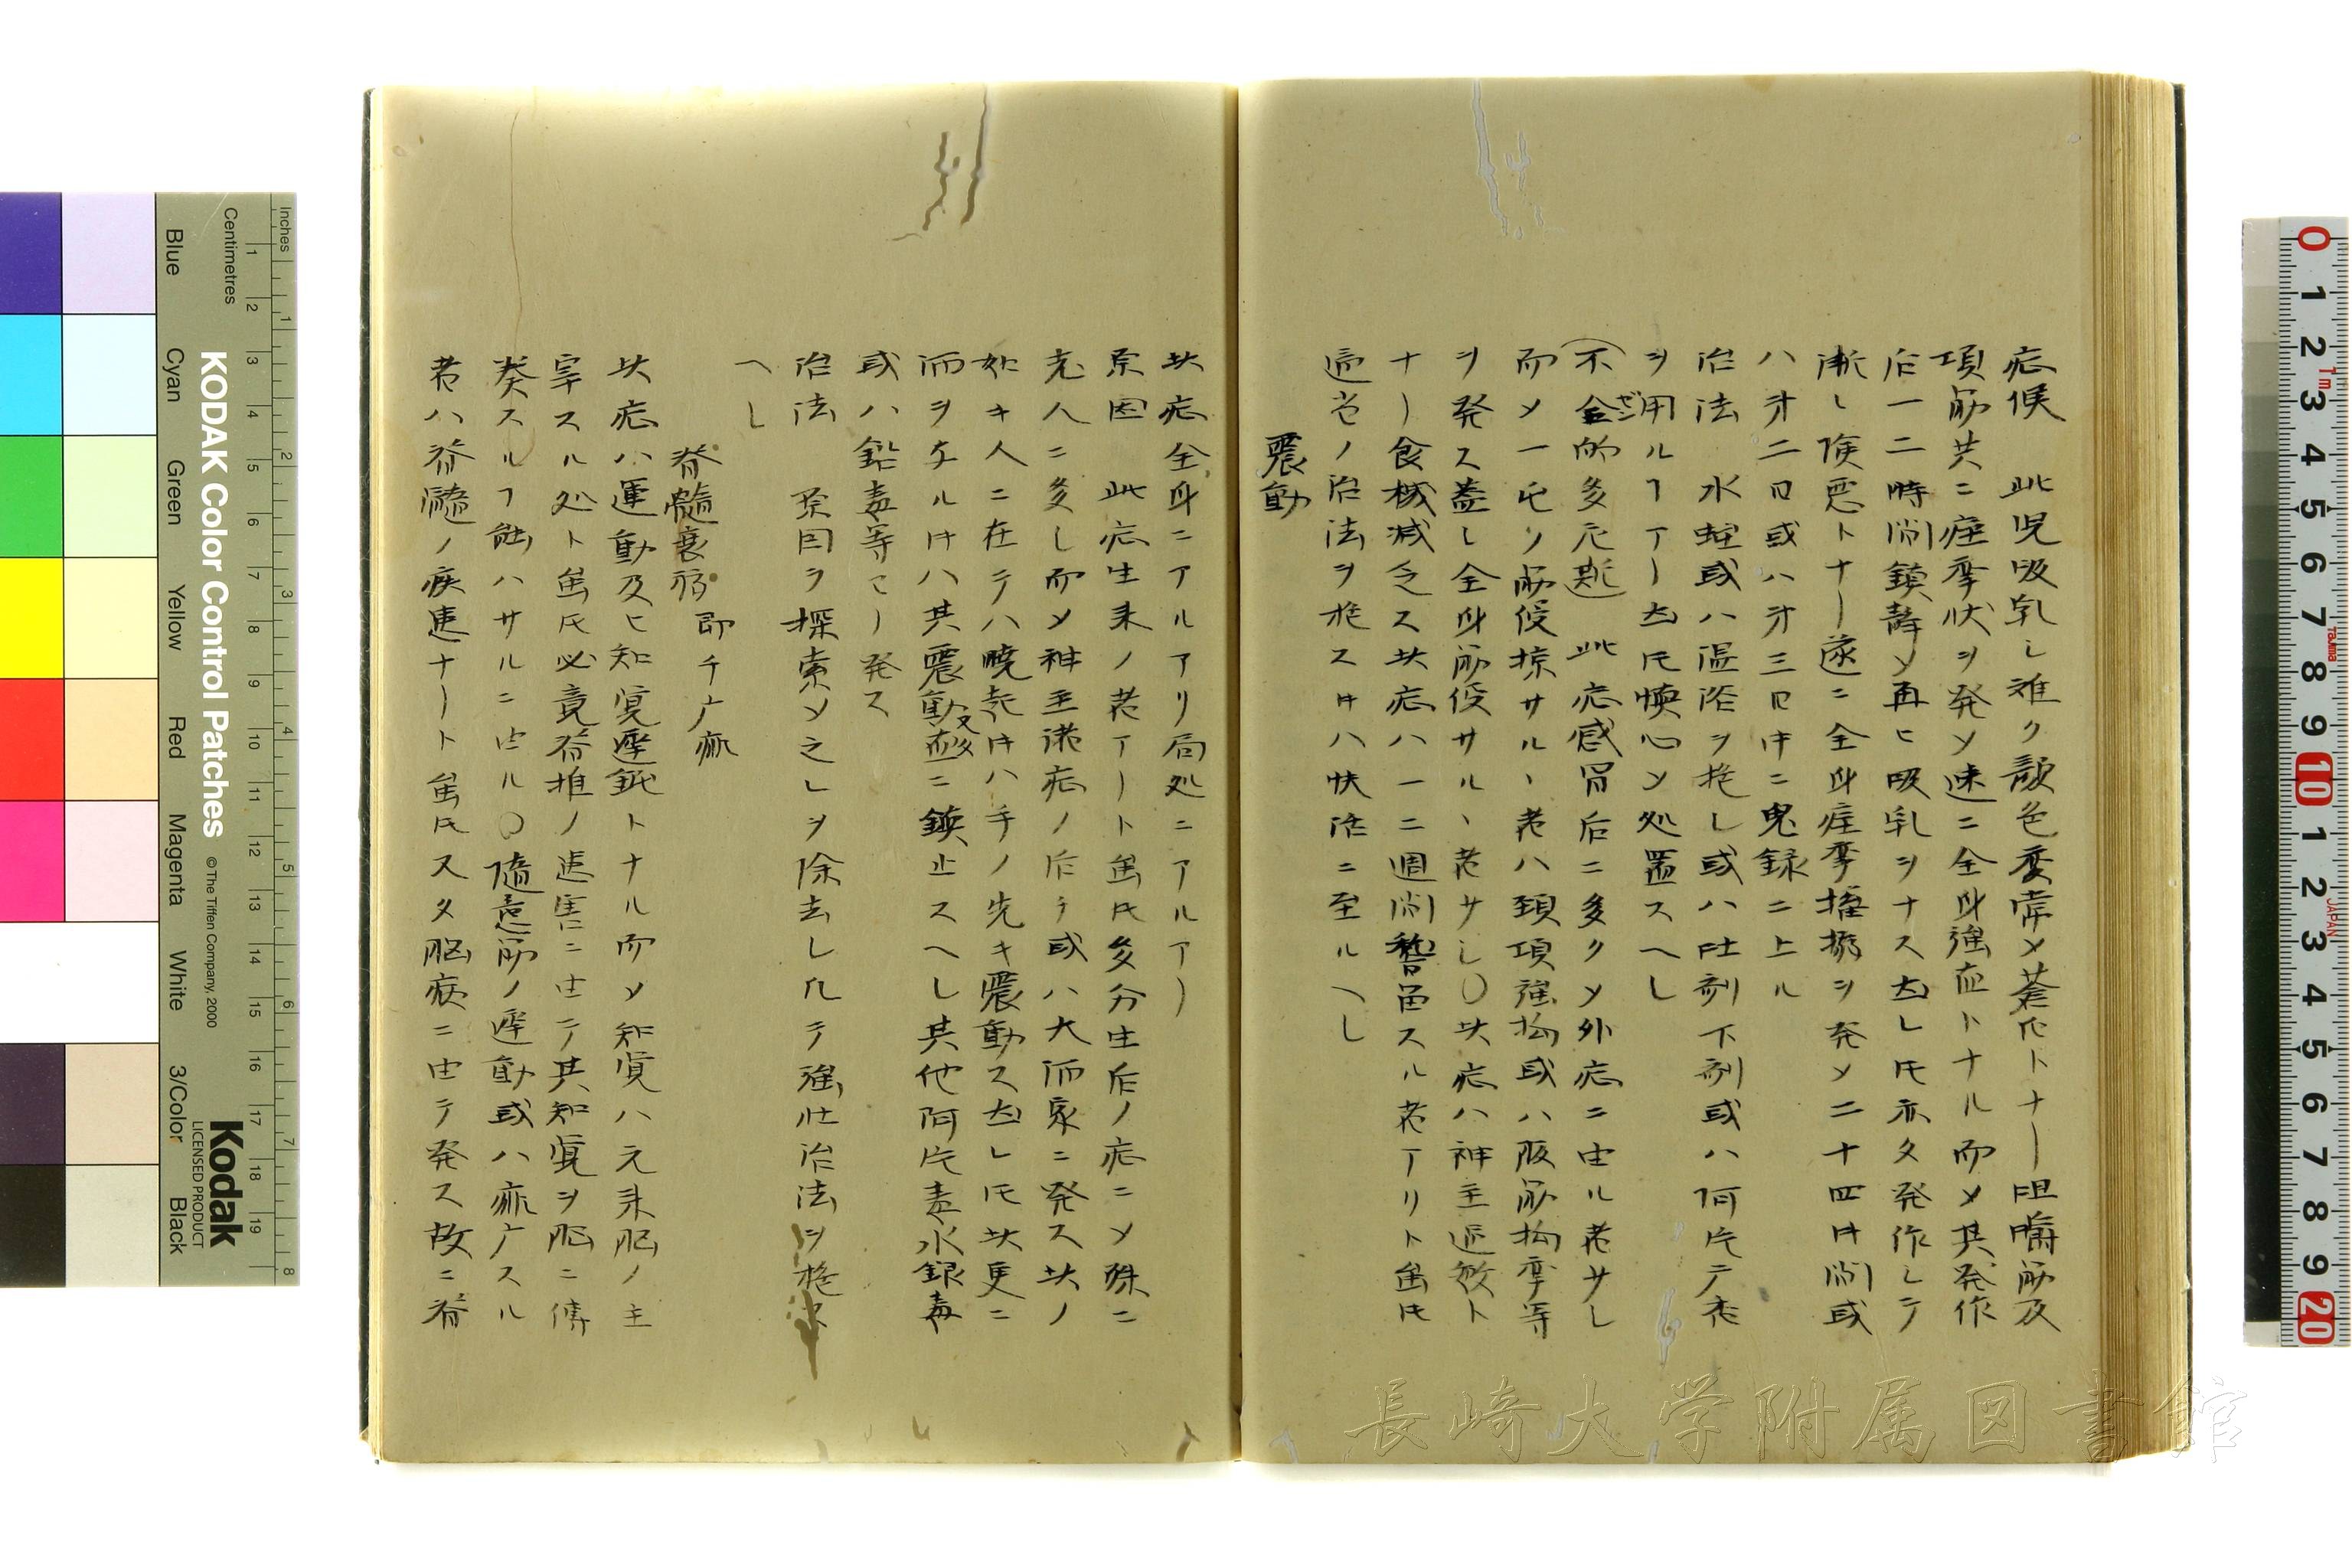 症候 此児吸乳し難ク顔色変常〆蒼白トナー咀嚼筋及
項筋共ニ痙挛状ヲ発〆速ニ全身強直トナル而〆其発作
后一二時間鎮静〆再ヒ吸乳ヲナス然レ𪜈亦タ発作シテ
漸し険悪トナー遂ニ全身痙挛搐搦ヲ発〆二十四时間或
ハ才二日或ハ才三日中ニ鬼録ニ上ル
治法 水蛭或ハ温浴ヲ施し或ハ吐剤下剤或ハ阿片
ヲ用ルヿアー然𪜈慎心〆処置スヘし
不全的多尼斯 此症感冒后ニ多ク〆外症ニ由ル者サし
而〆一モソ筋侵掠サル丶者ハ頚項強拘或ハ腹筋拘挛等
ヲ発ス蓋し全身筋侵サル丶者サし〇此症ハ神圭過敏ト
ナー食機減乏ス此症ハ一二週間稽留スル者アリト雖𪜈
適当ノ治法ヲ施ス时ハ快活ニ至ルヘし
震動
此症全身ニアルアリ局処ニアルアー
原因 此症生来ノ者アート雖𪜈多分生后ノ症ニ〆殊ニ
老人ニ多し而〆神圭諸症ノ后チ或ハ大酒家ニ発ス此ノ
如キ人ニ在テハ暁起时ハ手ノ先キ震動ス然レ𪜈此更ニ
酒ヲ与ル时ハ其震動忽ニ鎮止スヘし其他阿片毒水銀毒
或ハ鉛毒等ニー発ス
治法 原因ヲ探索〆之レヲ除去し凡テ強壮治法ヲ施ス
ヘし
脊髄衰弱 即チ麻痲
此症ハ運動及ヒ知覚遅鈍トナル而〆知覚ハ元来脳ノ主
宰スル処ト雖𪜈必竟脊椎ノ患害ニ由テ其知覚ヲ脳ニ傳
奏スルヿ能ハサルニ由ル〇随意筋ノ遅動或ハ痲痺スル
者ハ脊髄ノ疾患ナート雖𪜈又タ脳病ニ由テ発ス故ニ脊
Inches
Centimetres
KODAK Color Control Patches
© The Tiffen Company, 2000
Kodak
LICENSED PRODUCT
Blue Cyan Green Yellow Red Magenta White 3/Color Black
長崎大学附属図書館